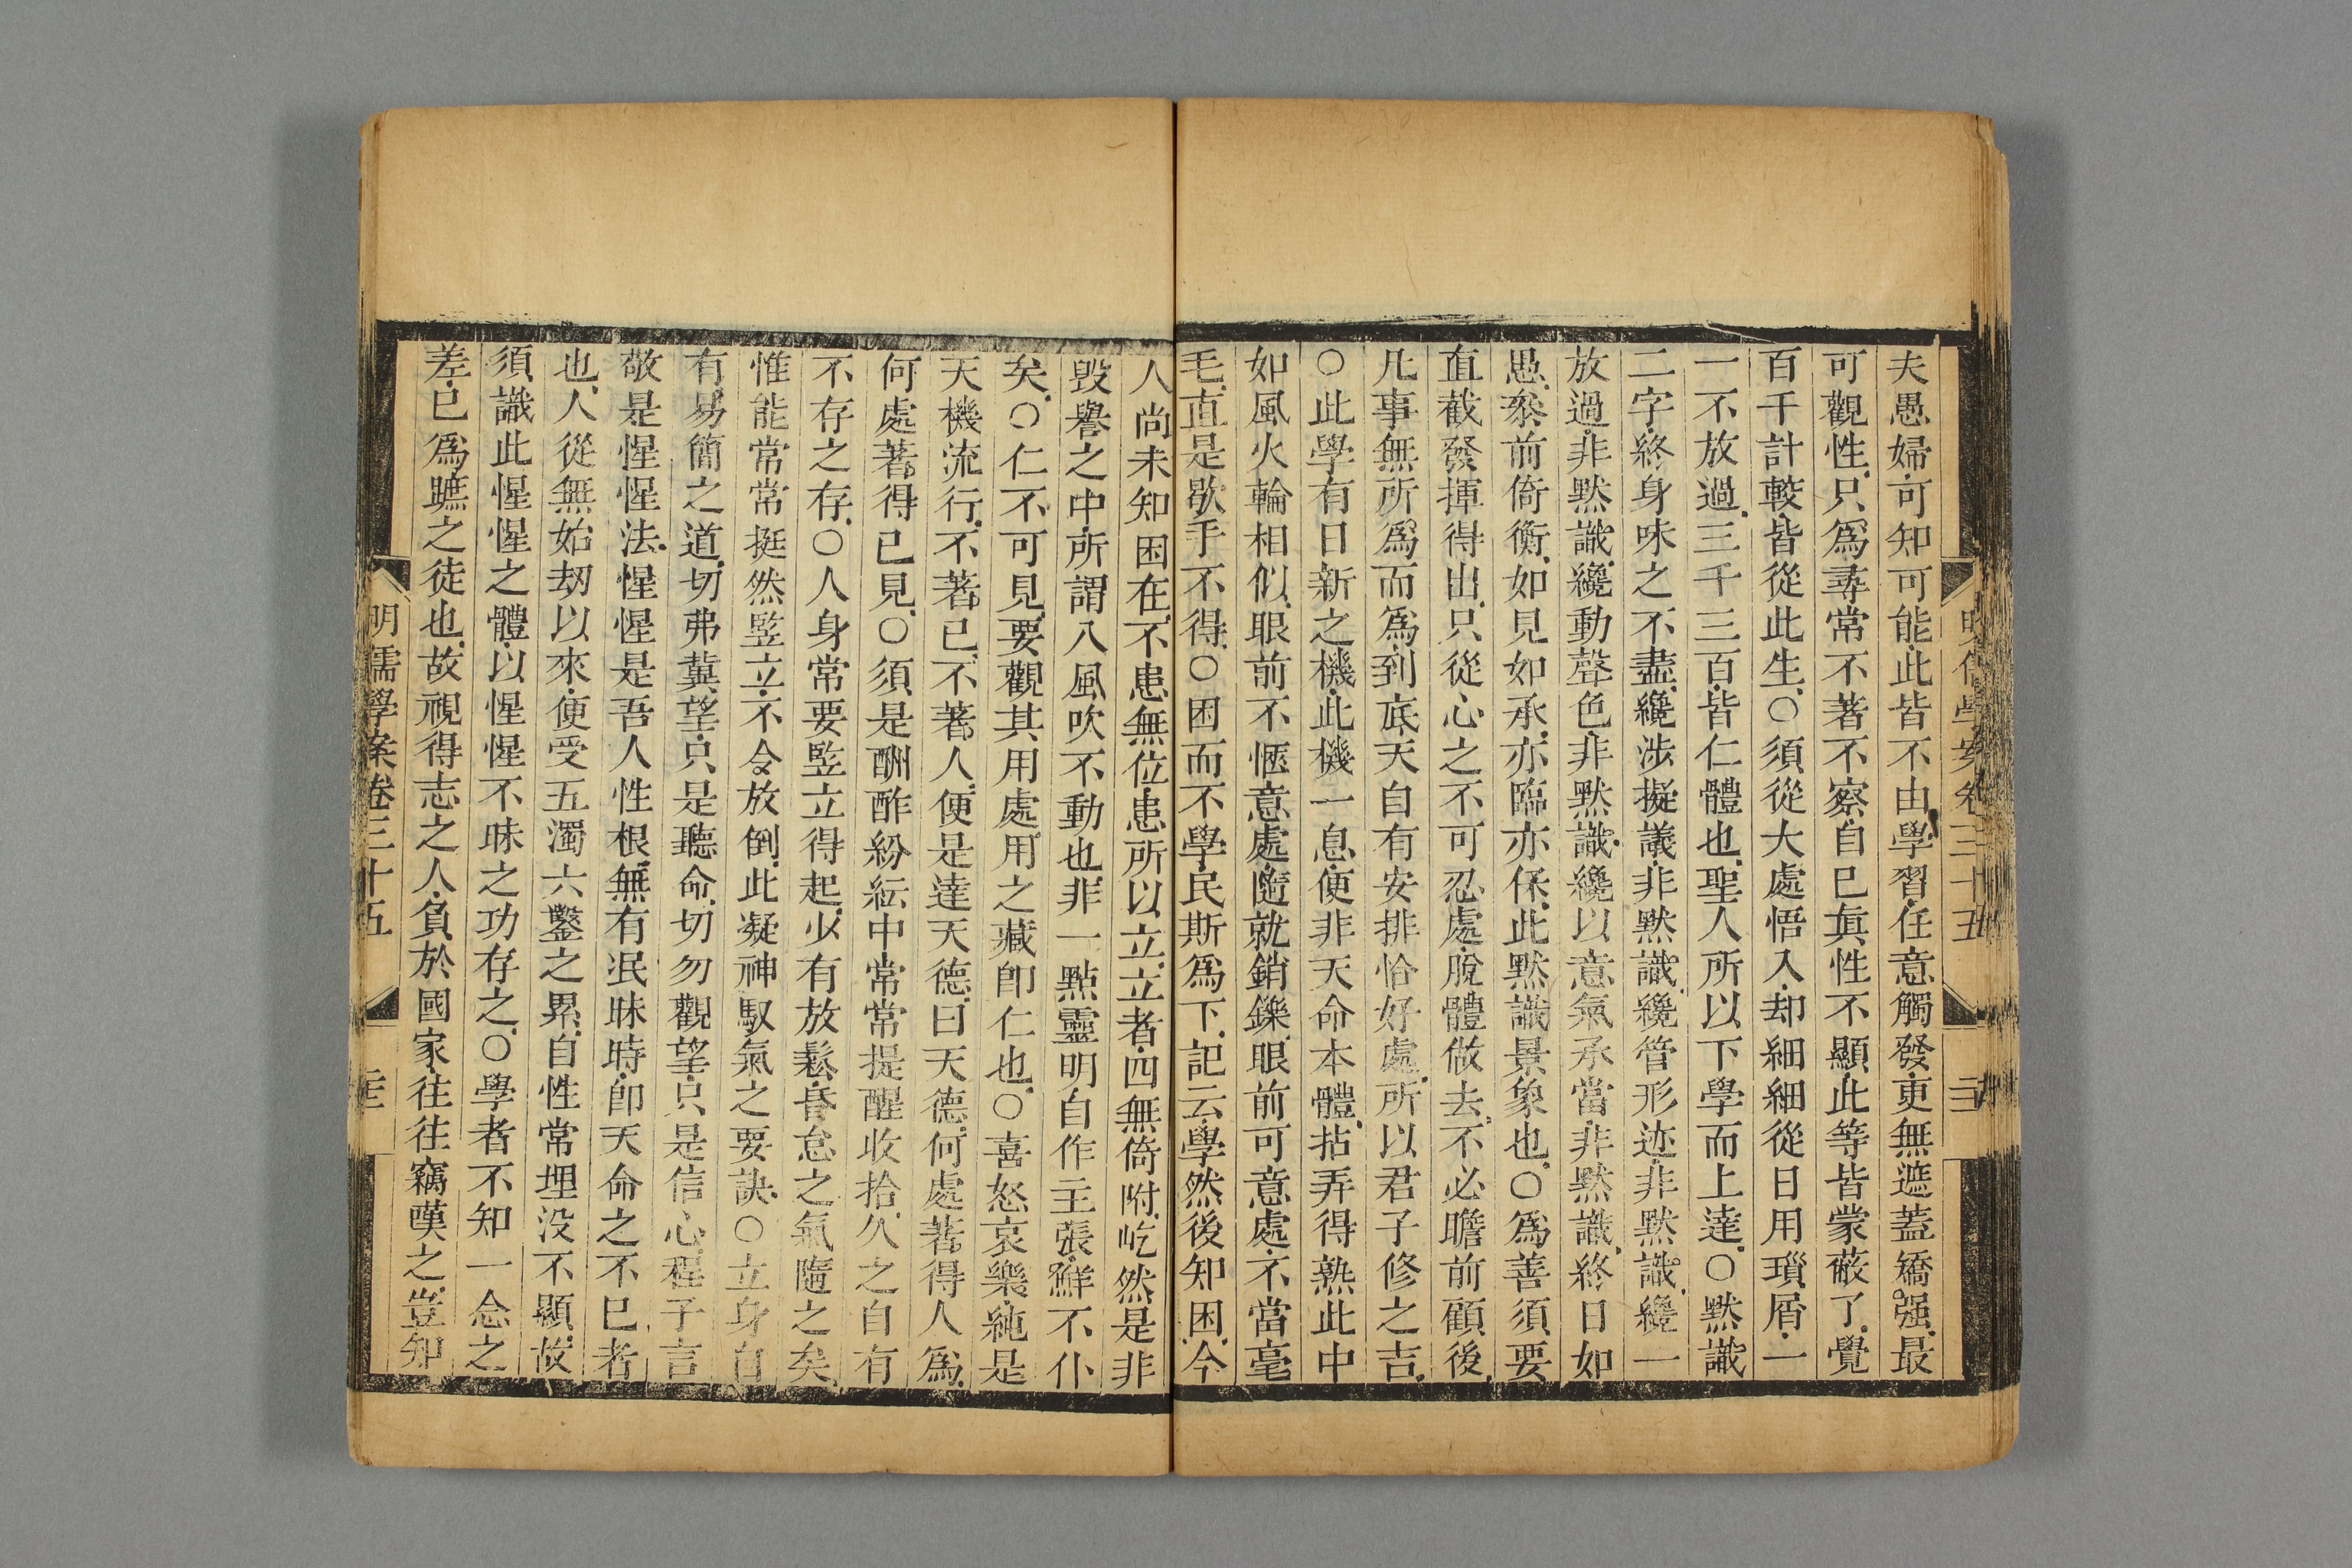 夫愚婦可知可能此皆不由學習任意觸發更無遮蓋矯强最
可觀性只爲尋常不著不察自己眞性不顯此等皆蒙蔽了覺
百千計較皆從此生○須從大處悟入却細細從日用瑣屑一
一不放過三千三百皆仁體也聖人所以下學而上達○默識
二字終身味之不盡纔涉擬議非默識纔管形迹非默識纔一
放過非默識纔動聲色非默識纔以意氣承當非默識終日如
愚叅前倚衡如見如承亦臨亦保此默識景象也○爲善須要
直截發揮得出只從心之不可忍處脫體做去不必瞻前顧後
凡事無所爲而爲到底天自有安排恰好處所以君子修之吉
○此學有日新之機此機一息便非天命本體拈弄得熟此中
如風火輪相似眼前不愜意處隨就銷鑠眼前可意處不當毫
毛直是歇手不得○困而不學民斯爲下記云學然後知困今
人尚未知困在不患無位患所以立立者四無倚附屹然是非
毀譽之中所謂入風吹不動也非一點靈明自作主張鮮不仆
矣○仁不可見要觀其用處用之藏卽仁也○喜怒哀樂純是
天機流行不著已不著人便是達天德曰天德何處著得人爲
何處著得已見○須是酬酢紛紜中常常提醒收拾久之自有
不存之存○人身常要竪立得起少有放鬆昏怠之氣隨之矣
惟能常常挺然竪立不令放倒此凝神馭氣之要訣○立身自
有易簡之道切弗冀望只是聽命切勿觀望只是信心程子言
敬是惺惺法惺惺是吾人性根無有泯昧時卽天命之不已者
也人從無始劫以來便受五濁六鑿之累自性常埋没不顯故
須識此惺惺之體以惺惺不昧之功存之○學者不知一念之
差已爲蹠之徒也故視得志之人負於國家往往竊嘆之豈知
明儒學案卷三十五